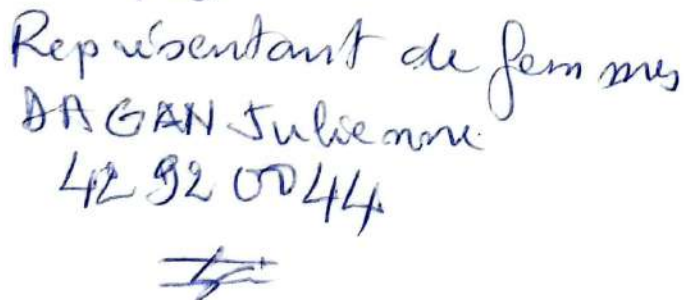 Représentant de femmes
DAGAN Julienne
42 92 00 44